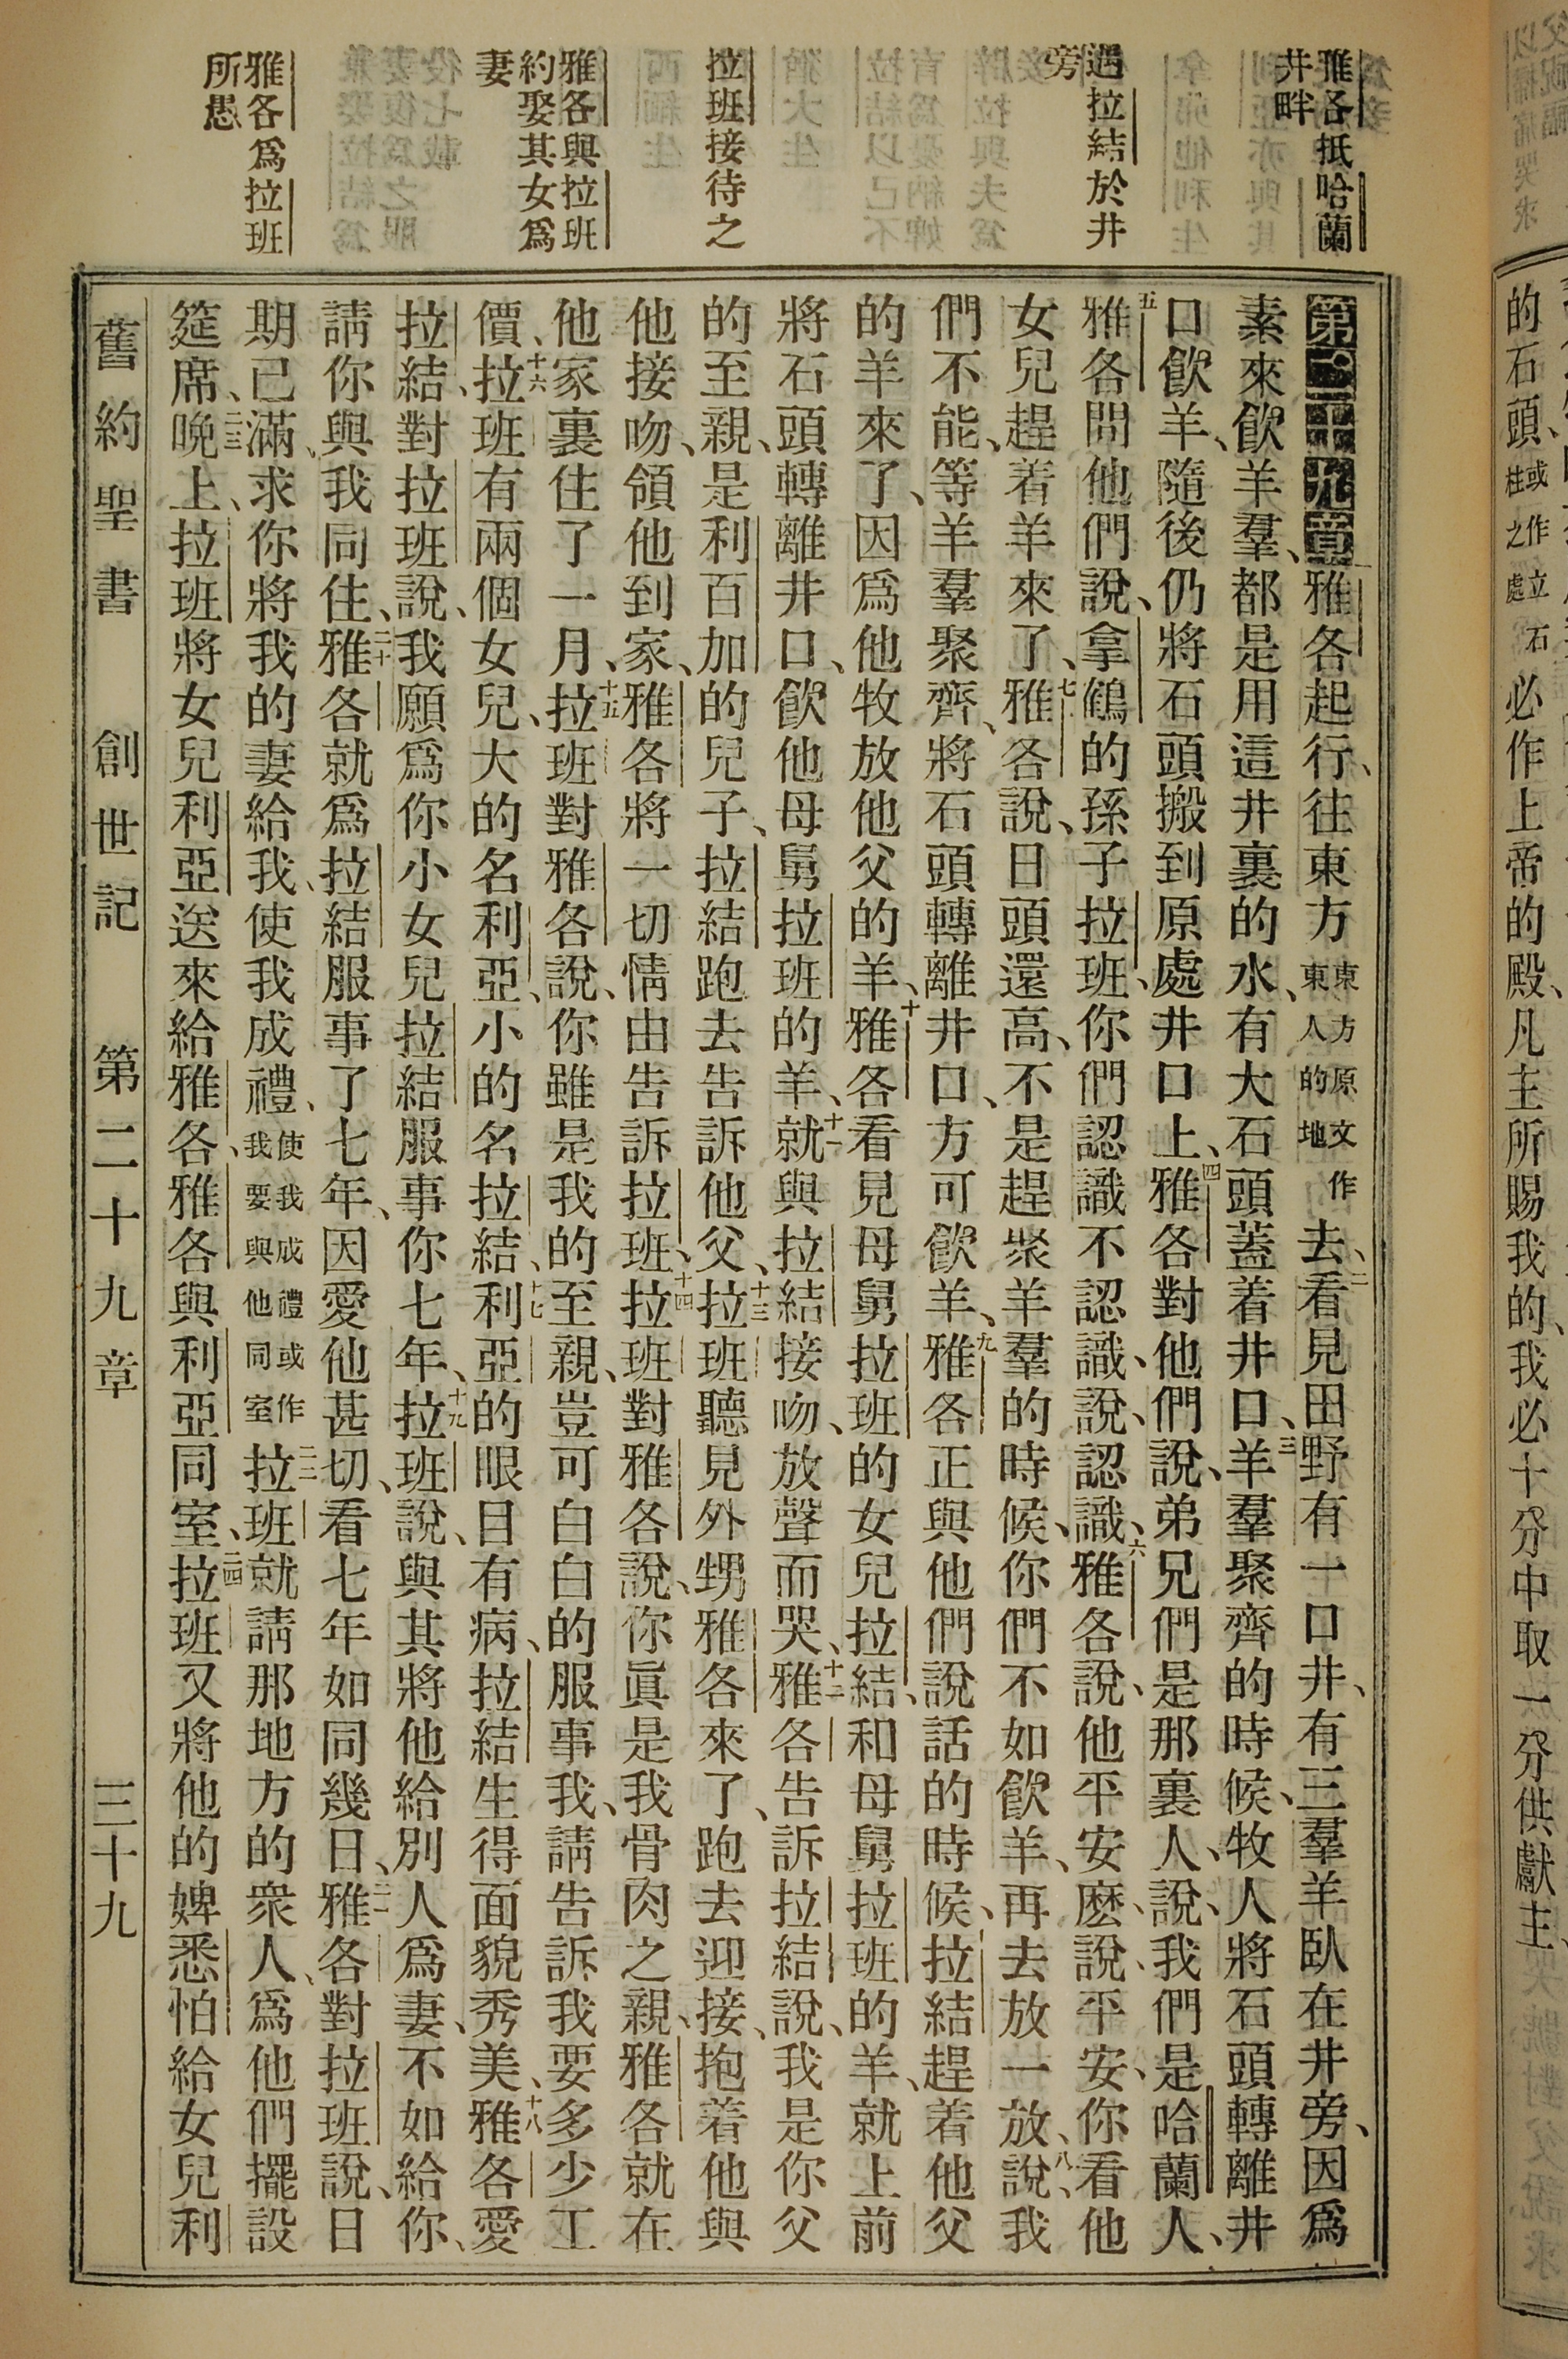 雅各抵哈蘭
井畔
遇拉結於井
旁
拉班接待之
雅各與拉班
約娶其女爲
妻
雅各爲拉班
所愚
第二十九章雅各起行、往東方東方原文作東人的地去、二看見田野有一口井、有三羣羊臥在井旁、因爲
素來飲羊羣、都是用這井裏的水、有大石頭蓋着井口、三羊羣聚齊的時候、牧人將石頭轉離井
口飲羊、隨後仍將石頭搬到原處井口上、四雅各對他們說、弟兄們是那裏人、說、我們是哈蘭人、
五雅各問他們說、拿鶴的孫子拉班、你們認識不認識、說、認識、六雅各說、他平安麼、說、平安、你看他
女兒趕着羊來了、七雅各說、日頭還高、不是趕聚羊羣的時候、你們不如飲羊、再去放一放、八說、我
們不能、等羊羣聚齊、將石頭轉離井口、方可飲羊、九雅各正與他們說話的時候、拉結趕着他父
的羊來了、因爲他牧放他父的羊、十雅各看見母舅拉班的女兒拉結、和母舅拉班的羊、就上前
將石頭轉離井口、飲他母舅拉班的羊、十一就與拉結接吻、放聲而哭、十二雅各告訴拉結說、我是你父
的至親、是利百加的兒子、拉結跑去告訴他父、十三拉班聽見外甥雅各來了、跑去迎接、抱着他與
他接吻、領他到家、雅各將一切情由告訴拉班、十四拉班對雅各說、你眞是我骨肉之親、雅各就在
他家裏住了一月、十五拉班對雅各說、你雖是我的至親、豈可白白的服事我、請告訴我要多少工
價、十六拉班有兩個女兒、大的名利亞、小的名拉結、十七利亞的眼目有病、拉結生得面貌秀美、十八雅各愛
拉結、對拉班說、我願爲你小女兒拉結服事你七年、十九拉班說、與其將他給別人爲妻、不如給你、
請你與我同住、二十雅各就爲拉結服事了七年、因愛他甚切、看七年如同幾日、二一雅各對拉班說、日
期已滿、求你將我的妻給我、使我成禮、使我成禮或作我要與他同室二二拉班就請那地方的衆人、爲他們擺設
筵席、二三晚上、拉班將女兒利亞送來給雅各、雅各與利亞同室、二四拉班又將他的婢悉怕給女兒利
舊約聖書 創世記 第二十九章 三十九
的石頭、或作立石柱之處必作上帝的殿、凡主所賜我的、我必十分中取一分供獻主、